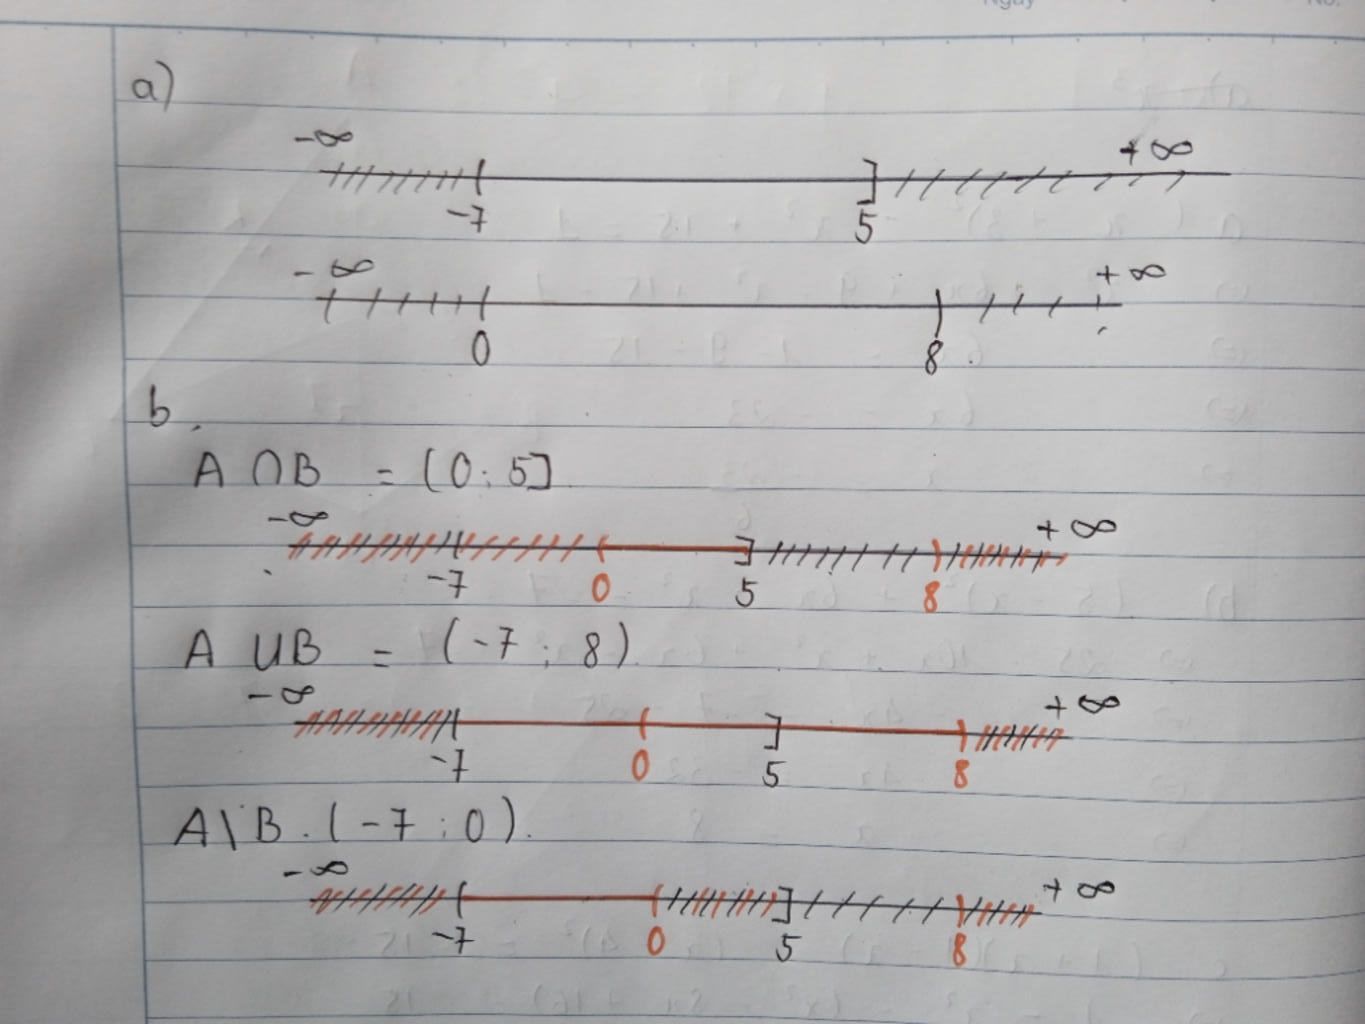 Ngày
No.
a)
-∞ +∞
( ]
-7 5
-∞ +∞
( )
0 8
b.
A ∩ B = (0; 5]
-∞ +∞
( ( ] )
-7 0 5 8
A ∪ B = (-7 ; 8)
-∞ +∞
( ( ] )
-7 0 5 8
A \ B . (-7 ; 0).
-∞ +∞
( ( ] )
-7 0 5 8